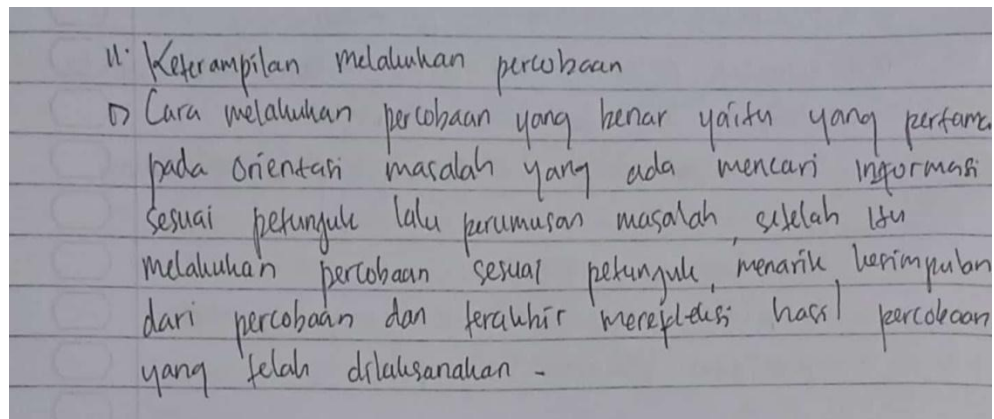 11. Keterampilan melakukan percobaan
Cara melakukan percobaan yang benar yaitu yang pertama
pada orientasi masalah yang ada mencari informasi
sesuai petunjuk lalu perumusan masalah, setelah itu
melakukan percobaan sesuai petunjuk, menarik kesimpulan
dari percobaan dan terakhir merefleksi hasil percobaan
yang telah dilaksanakan -